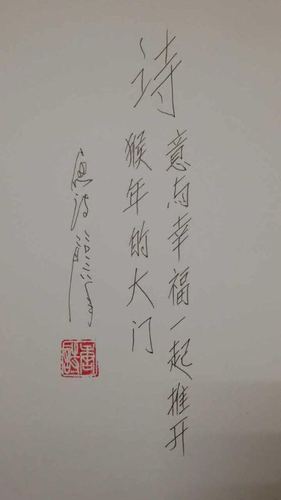 诗
意与幸福一起推开
猴年的大门